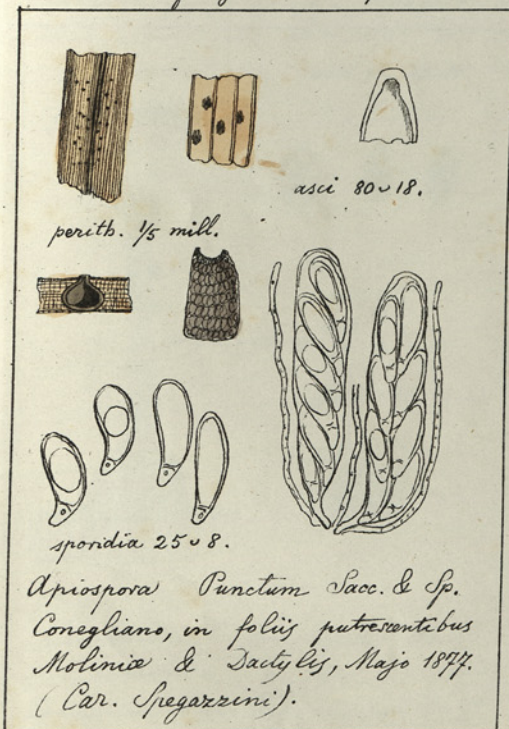 asci 80 ᴗ 18.
perith. 1/5 mill.
sporidia 25 ᴗ 8.
Apiospora Punctum Sacc. & Sp.
Conegliano, in foliis putrescentibus
Moliniæ & Dactylis, Majo 1877.
(Car. Spegazzini).